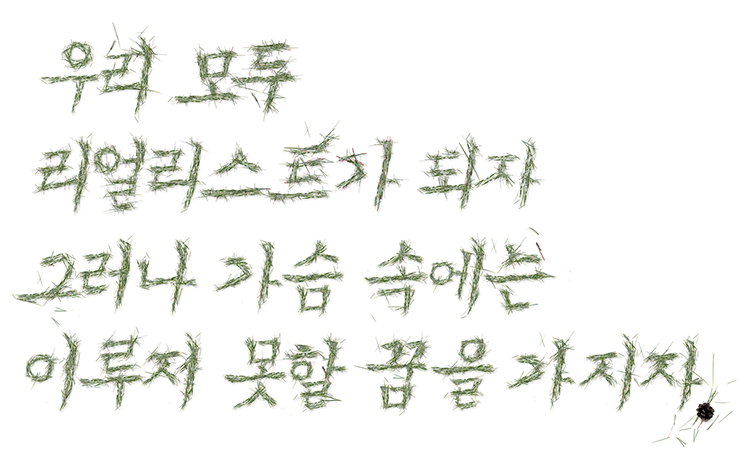 우리 모두
리얼리스트가 되자
그러나 가슴 속에는
이루지 못할 꿈을 가지자.